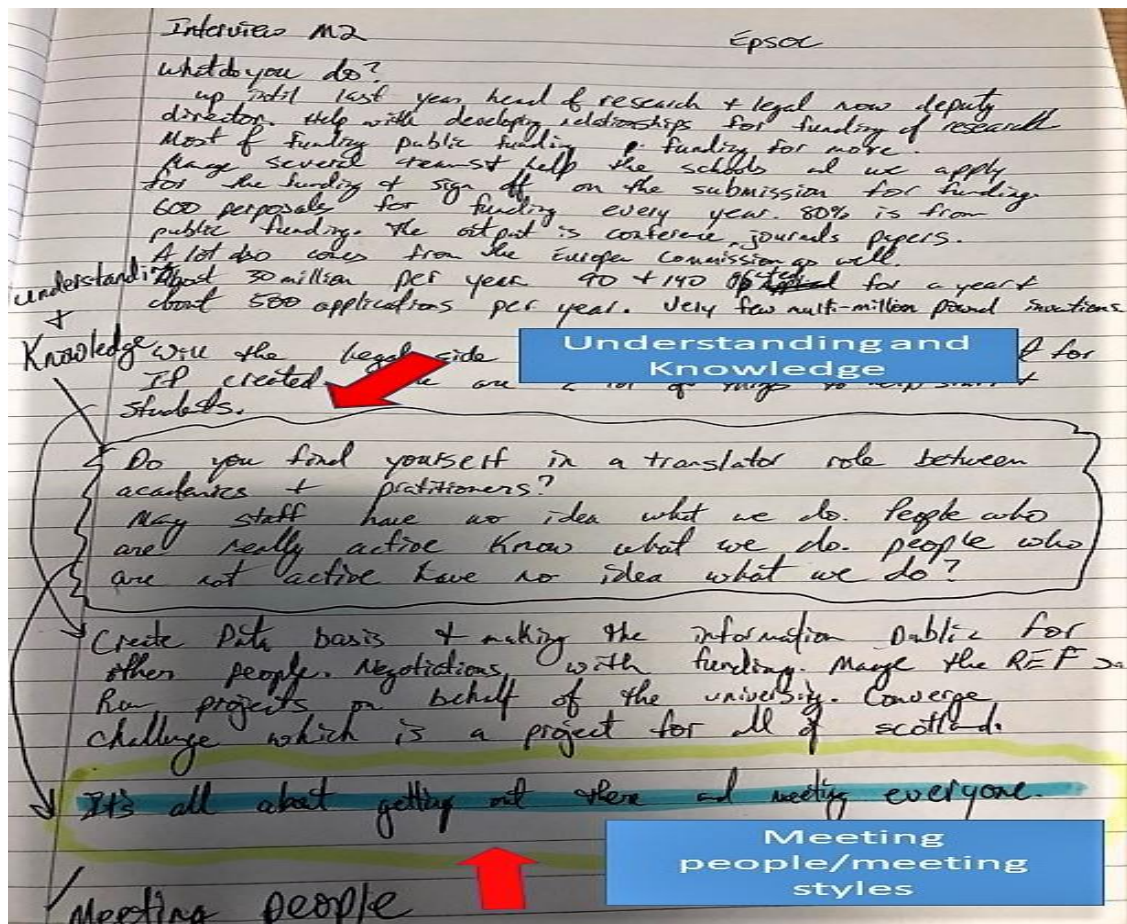 Interview M2 Epsoc
what do you do?
up until last year head of research + legal now deputy
director. Help with developing relationships for funding of research
Most of funding public funding funding for more.
several teams + help the schools and we apply
for the funding + sign off on the submission for funding.
600 perposals for funding every year. 80% is from
public funding. The output is conference, journals papers.
A lot also comes from the European Commission as well.
understanding
About 30 million per year 90 + 140 for a year +
about 500 applications per year. Very few multi-million pound
+
Knowledge
will the legal side
for
Understanding and
Knowledge
IP created are
students.
Do you find yourself in a translator role between
academics + pratitioners?
May staff have no idea what we do. People who
are really active know what we do. people who
are not active have no idea what we do?
Create Data basis + making the information public for
other people. Negotiations with funding. Mange the REF
Run projects on behalf of the university. Converge
challenge which is a project for all of scotland.
It's all about getting out there and meeting everyone.
Meeting
people/meeting
styles
Meeting people